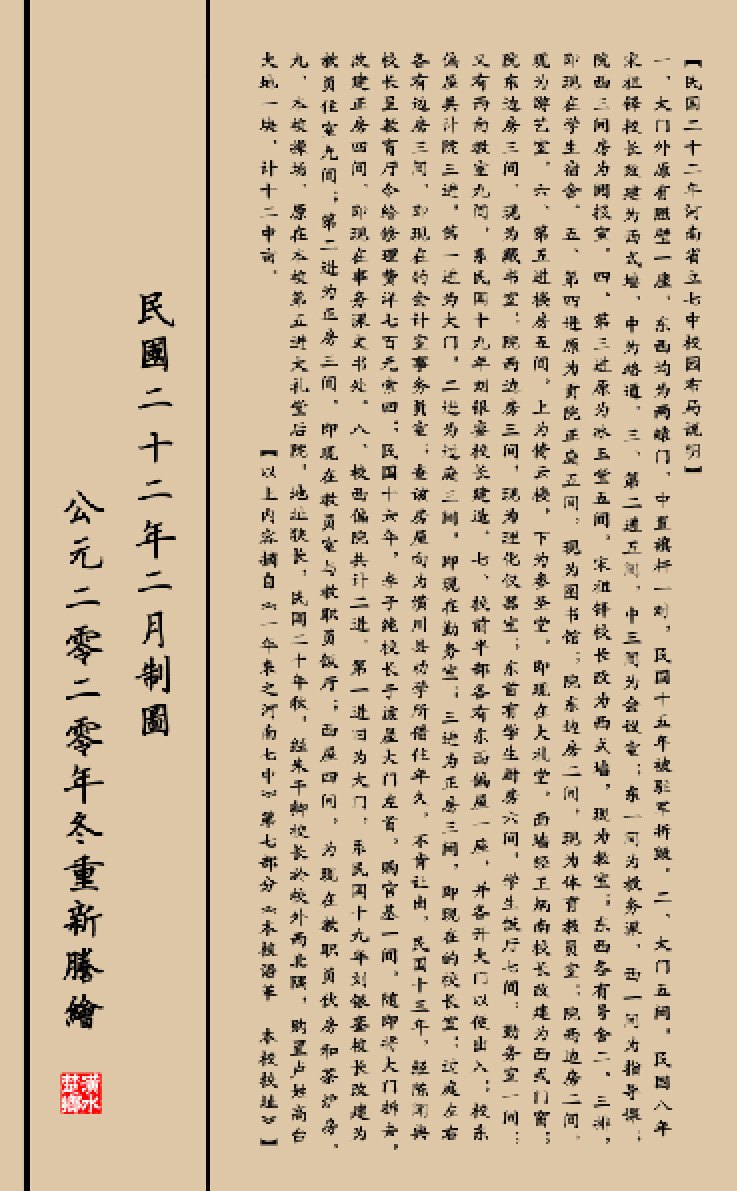 【民国二十二年河南省立七中校园布局说明】
一、大门外原有照壁一座，东西均为两辕门，中置旗杆一对，民国十五年被驻军拆毁。二、大门五间，民国八年
宋祖铎校长改建为西式墙，中为路道。三、第二进五间，中三间为会议室；东一间为教务课，西一间为指导课；
院西三间房为阅报室。四、第三进原为冰玉堂五间，宋祖铎校长改为西式墙，现为教室；东西各有号舍二、三排，
即现在学生宿舍。五、第四进原为贡院正庭五间，现为图书馆；院东边房二间，现为体育教员室；院西边房二间，
现为游艺室。六、第五进楼房五间，上为倚云楼，下为奎圣堂，即现在大礼堂，西墙经王炳南校长改建为西式门窗；
院东边房三间，现为藏书室；院西边房三间，现为理化仪器室；东首有学生厨房六间，学生饭厅七间，勤务室一间；
又有西向教室九间，系民国十九年刘银銮校长建造。七、校前半部各有东西偏屋一座，并各开大门以便出入；校东
偏屋共计院三进，第一进为大门，二进为过庭三间，即现在勤务室；三进为正房三间，即现在的校长室；过庭左右
各有边房三间，即现在的会计室事务员室；查该房屋向为潢川县劝学所借住年久，不肯让出，民国十三年，经陈
校长呈教育厅令给修理费洋七百元索回；民国十六年，李子纯校长于该屋大门左首，购官基一间，随即将大门拆去，
改建正房四间，即现在事务课文书处。八、校西偏院共计二进，第一进旧为大门，系民国十九年刘银銮校长改建为
教员住室九间；第二进为正房三间，即现在教员室与教职员饭厅；西屋四间，为现在教职员伙房和茶炉房。
九、本校操场，原在本校第五进大礼堂后院，地址狭长，民国二十年秋，经朱干卿校长於校外西北隅，购置卢姓高台
大地一块，计十二市亩。
【以上内容摘自《一年来之河南七中》第七部分《本校沿革 本校校址》】
民國二十二年二月制圖
公元二零二零年冬重新謄繪
潢水